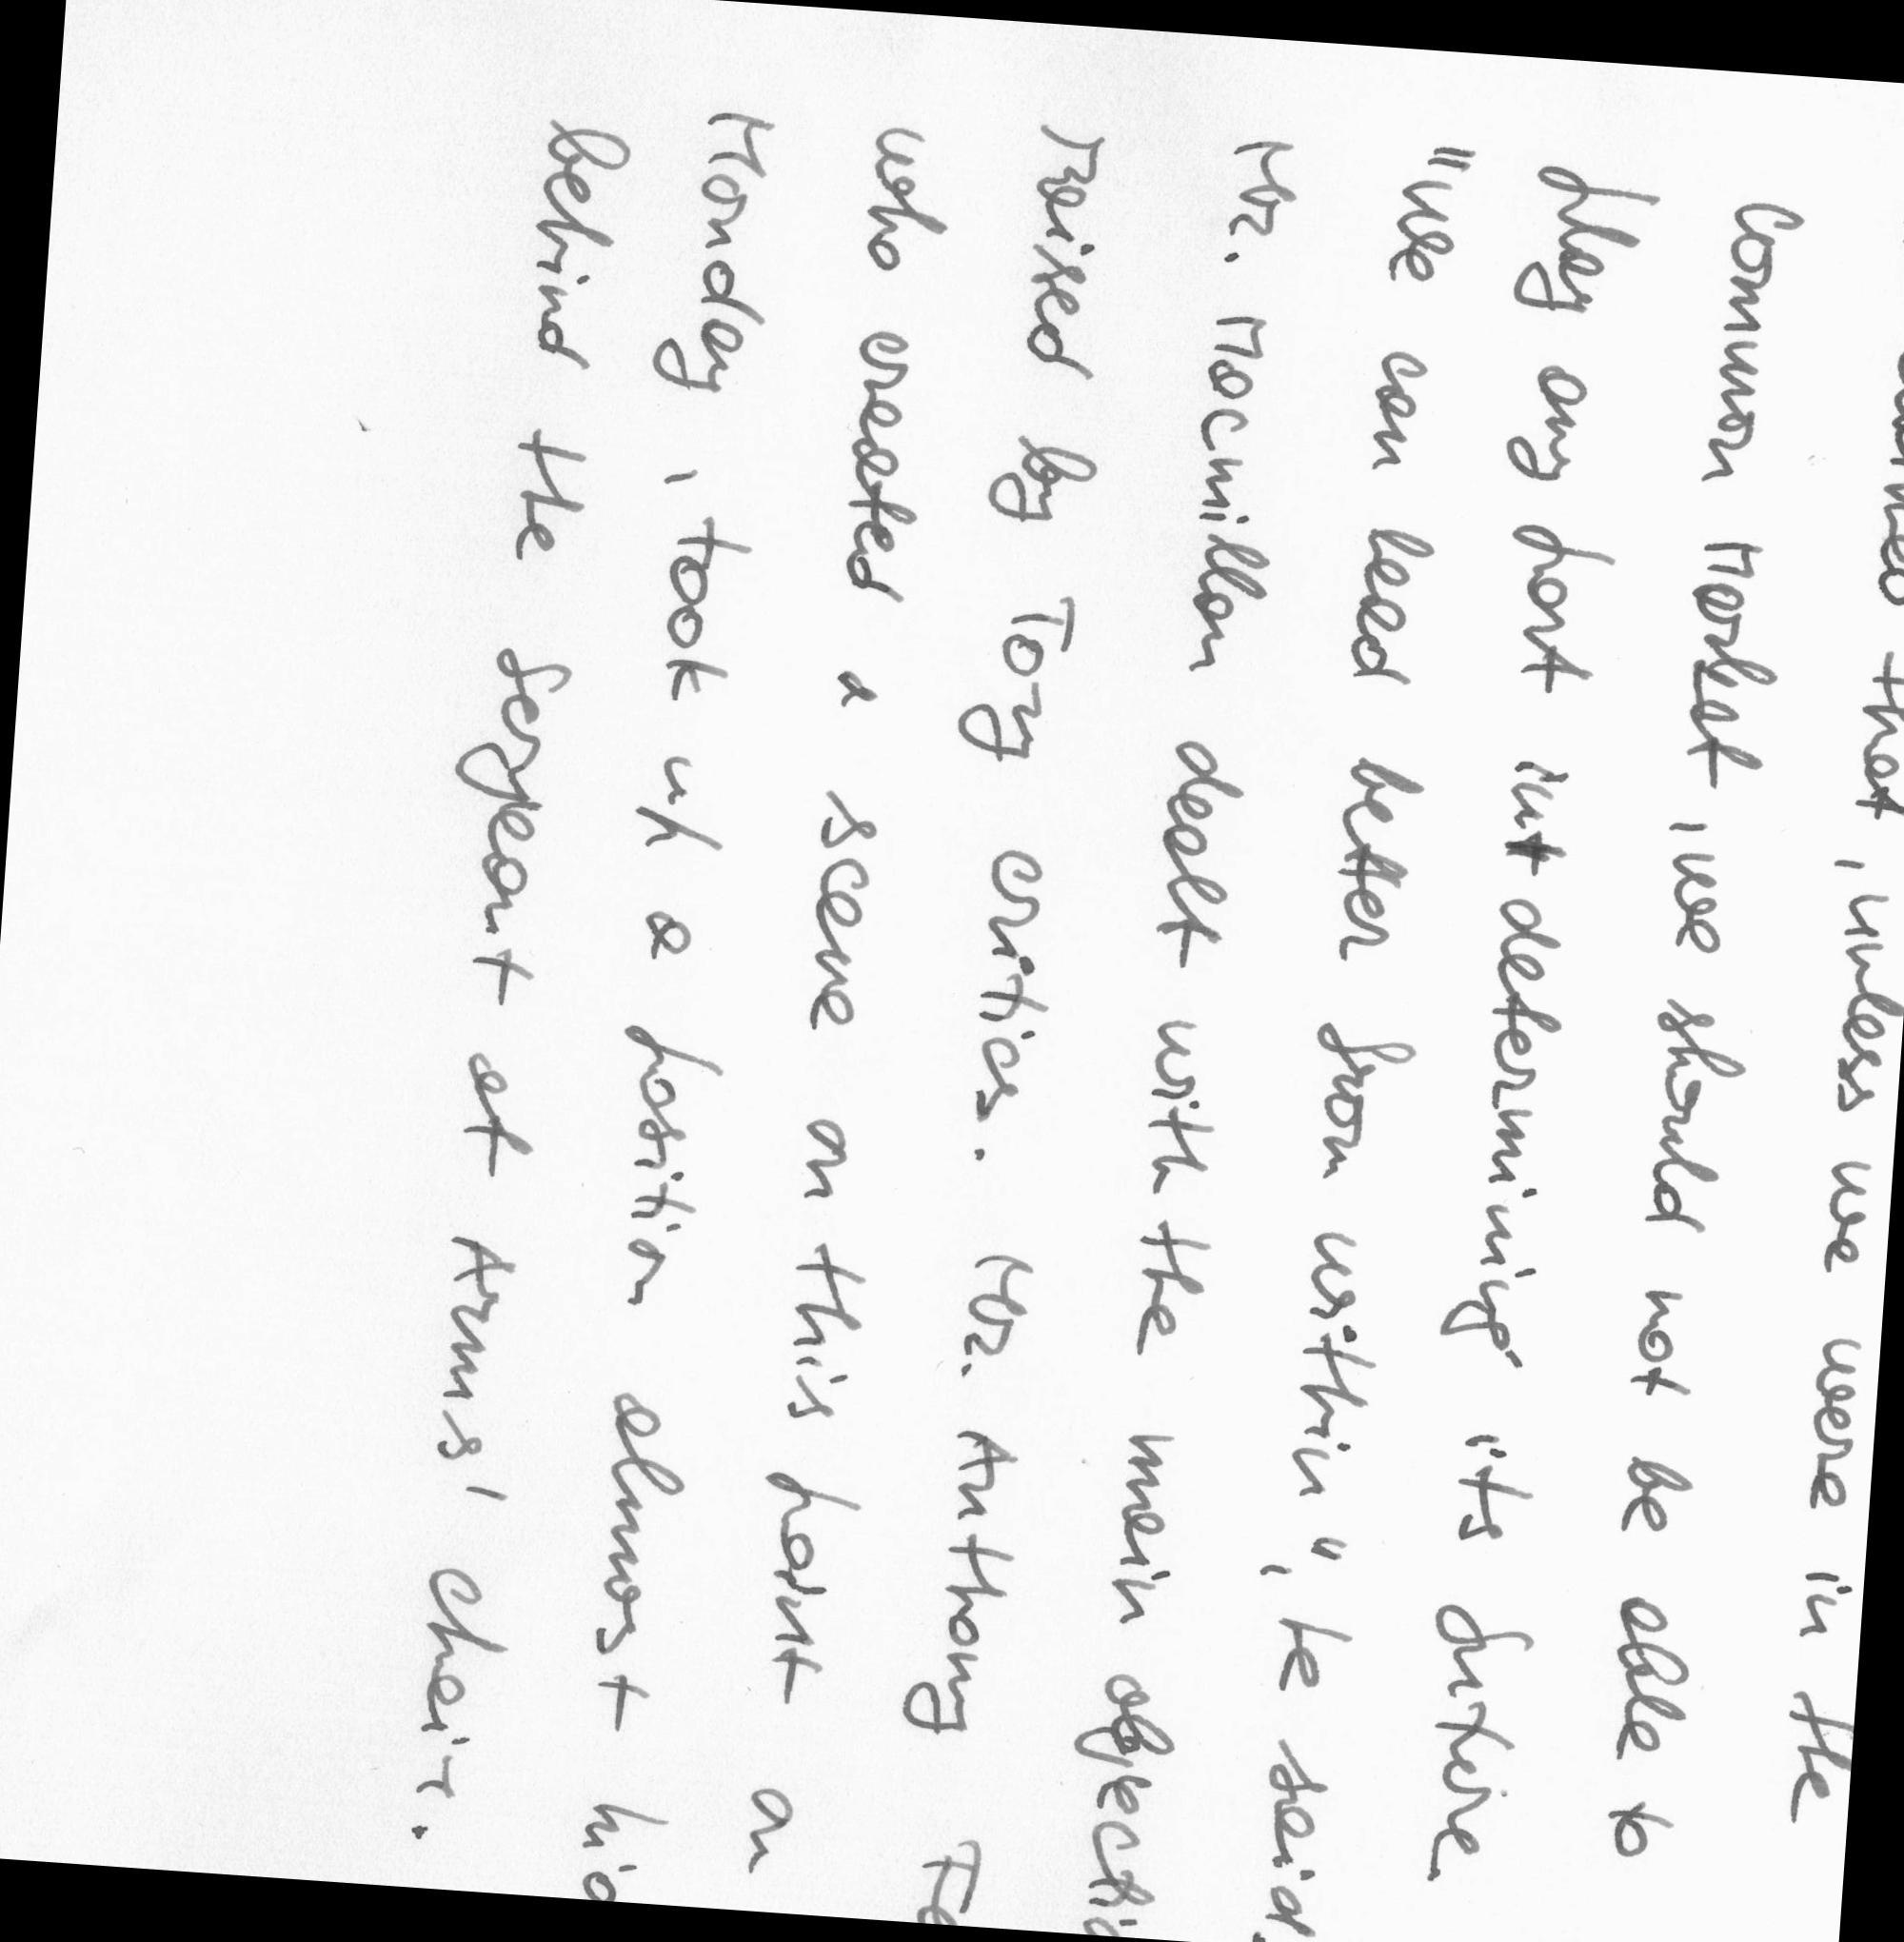 that, unless we were in the
Common Market, we should not be able to
play any part in determining its future.
"We can lead better from within", he said.
Mr. Macmillan dealt with the main
raised by Tory critics. Mr. Anthony
who created a scene on this point on
Monday, took up a position almost
behind the Sergeant at Arms' chair.